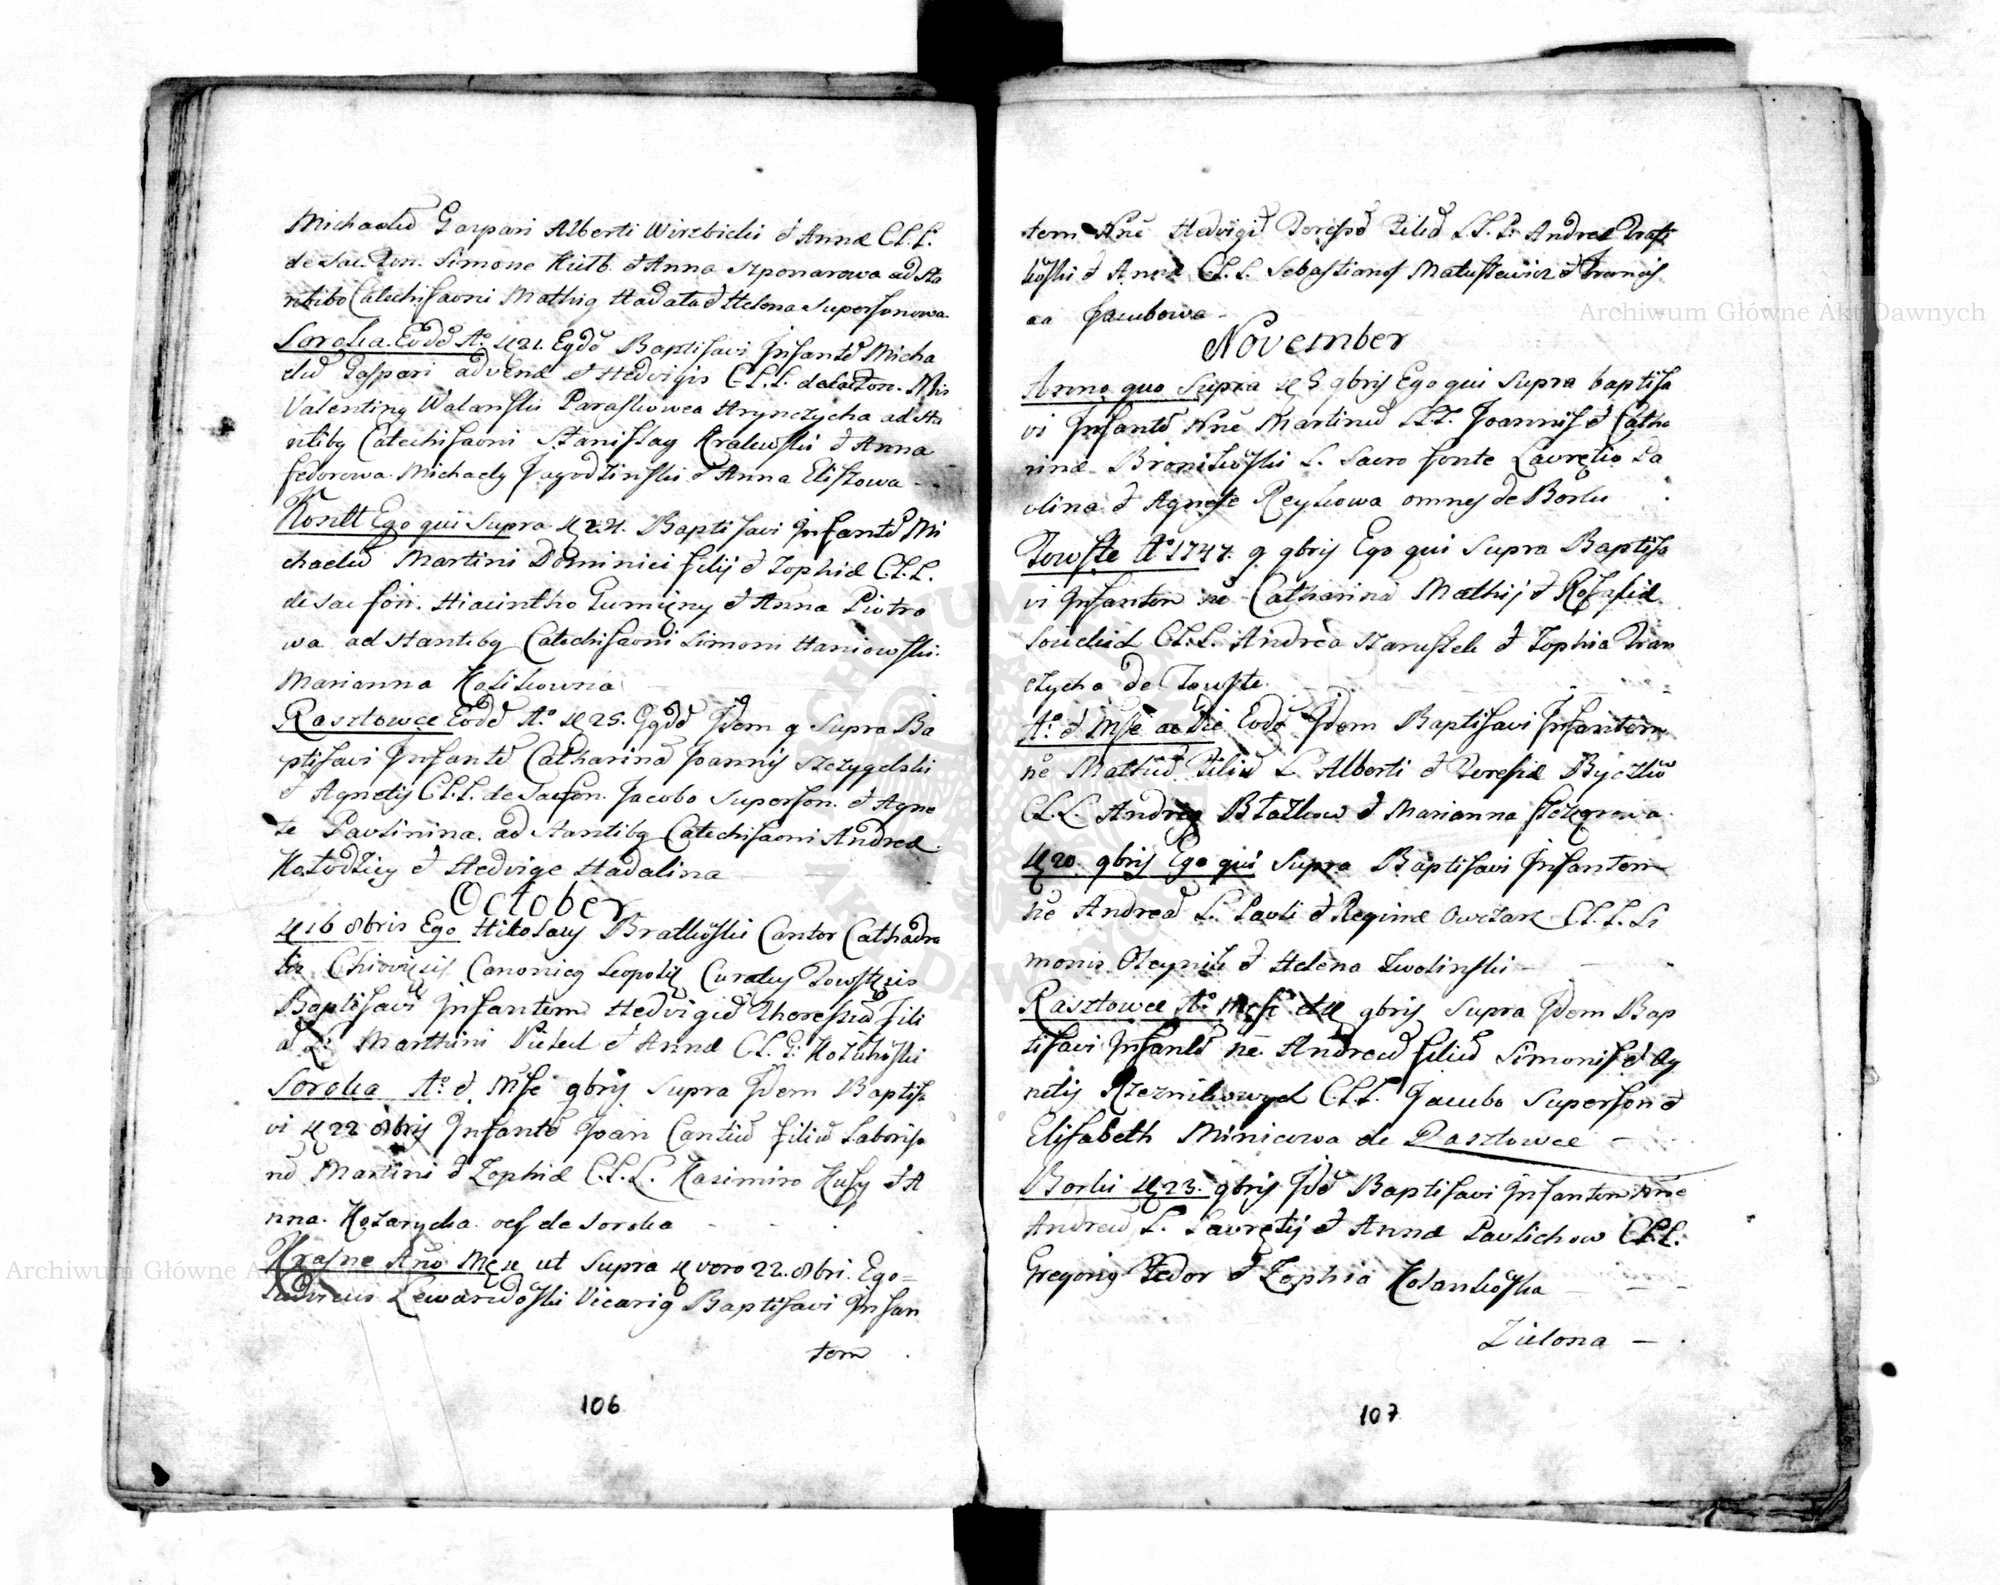 Michaelem Gaspari Alberti Wirzbicki et Annæ C.L.L.
de Sac. Fon. Simone Kutb. et Anna Szponarowa ad sta
ntibo Catechisaoni Mathia Hadala et Helena Supersonowa
Soroka. Eode Ao 21. Egode Baptisavi Infante Micha
elem Gaspari advenæ et Hedvigis C.L.L. de Sac Fon. Mis
Valentinq Walanski Paraskowea Hrynczycha ad sta
ntibq Catechisaoni Stanislaq Kralewski et Anna
fedorowa Michaelq Jagodzinski et Anna Elistowa
Ego qui Supra 24. Baptisavi Infante Mi
chaelem Martini Dominici filij et Zophiæ C.L.L.
de Sac fon. Hiacintho Gumieny et Anna Piotro
wa ad Stantibq Catechisaoni Simoni Haniowski
Marianna Kosikowna
Rasztowce Eode Ao. 25. Egode Idem q Supra Ba
ptisavi Infante Catharina Joannis Szczygelski
et Agnetis C.L.L. de Sac fon. Jacobo Superson. et Agne
te Pavlinina. ad Stantibq Catechisaoni Andreæ
Kołodziey et Hedvige Hadalina
October
16 8bris Ego Mikołay Bratkoski Cantor Cathædra
lis Chiovięsis Canonicq Leopolis Curatus Towstęsis
Baptisavi Infantem Hedvigem Theresiam fili
a L. Marthini et Annæ C.L.L. Kozukoski
Soroka Ao. et Mse 9bris Supra Idem Baptisa
vi 22 8bris Infante Joan Cantium filium Laboriso
rum Martini et Zophiæ C.L.L. Kasimiro Kusy et A
nna Kozarycha oes de Soroka
Krasne Ano Mse ut Supra vero 22. 8bri. Ego=
Ludvicus Lewandoski Vicariq Baptisavi Infan
tem
106
tem Nne Hedvigem Teresse Filia L.L. Andreæ Brat
koski et Annæ C.L.L. Sebastianq Matusiewicz et Francis
ca Jacubowa
November
Anno quo Supra 5 9bris Ego qui Supra baptisa
vi Infante Nne Martinum L.L. Joannis et Catha
rinæ Bronikoski L. Sacro fonte Lavrętio Pa
vlina et Agnese Reykowa omnes de Borki
Towste Ao 1747. 9 9bris Ego qui Supra Baptisa
vi Infantem ne Catharina Mathij et Rosaliæ
C.L.L. Andrea Starustek et Zophia Fran
czycha de Towste
Ao. et Mse ac Die Eode Idem Baptisavi Infantem
ne Mathium Filium L. Alberti et Teresiæ Byczkow
C.L.L. Andrea Błazkow et Marianna
20. 9bris Ego qui Supra Baptisavi Infantem
ne Andream L. Pavli et Reginæ Owczarz C.L.L. Si
monis Oleynik et Helena Zwolinski
Rasztowce Ao. Mse 9bris Supra Idem Bap
tisavi Infante ne Andream filium Simonis et Ag
netis Rzeznikowych C.L.L. Jacubo Superson et
Elisabeth Minicowa de Rasztowce
Borki 23. 9bris Ide Baptisavi Infantem nne
Andream L. Lavrętij et Annæ Pavlichow C.L.L.
Gregoriq Fedor et Zophia Kosankoska
Zielona
107
Archiwum Główne Akt Dawnych
Archiwum Główne Akt Dawnych